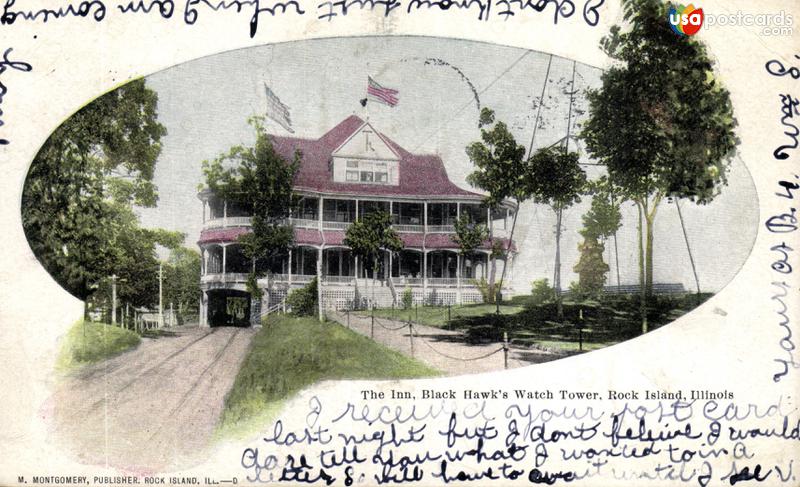 usapostcards.com
The Inn, Black Hawk's Watch Tower, Rock Island, Illinois
I received your post card
last night but I don't believe I would
dare tell you what I wanted to in a
letter so will have to wait until I see
I don't know just when I am
coming
Yours at
M. MONTGOMERY, PUBLISHER, ROCK ISLAND, ILL.—D